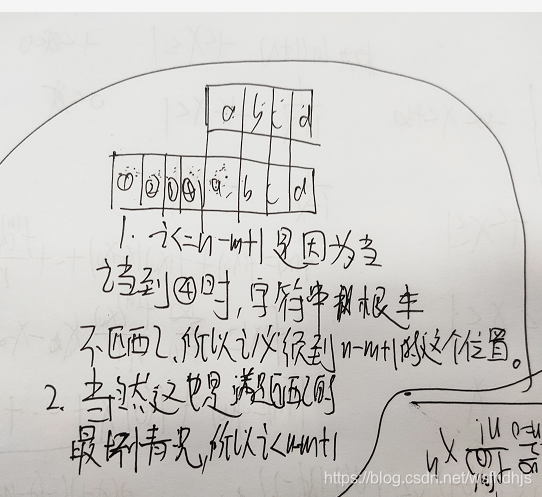 a b c d
① ② ③ ④ a b c d
1. i<=n-m+1是因为当
i当到④时,字符串根本
不匹配,所以i必须到n-m+1的这个位置。
2. 当然这也是满足匹配的
最坏情况,所以i<n-m+1
https://blog.csdn.net/wsjkdhjs